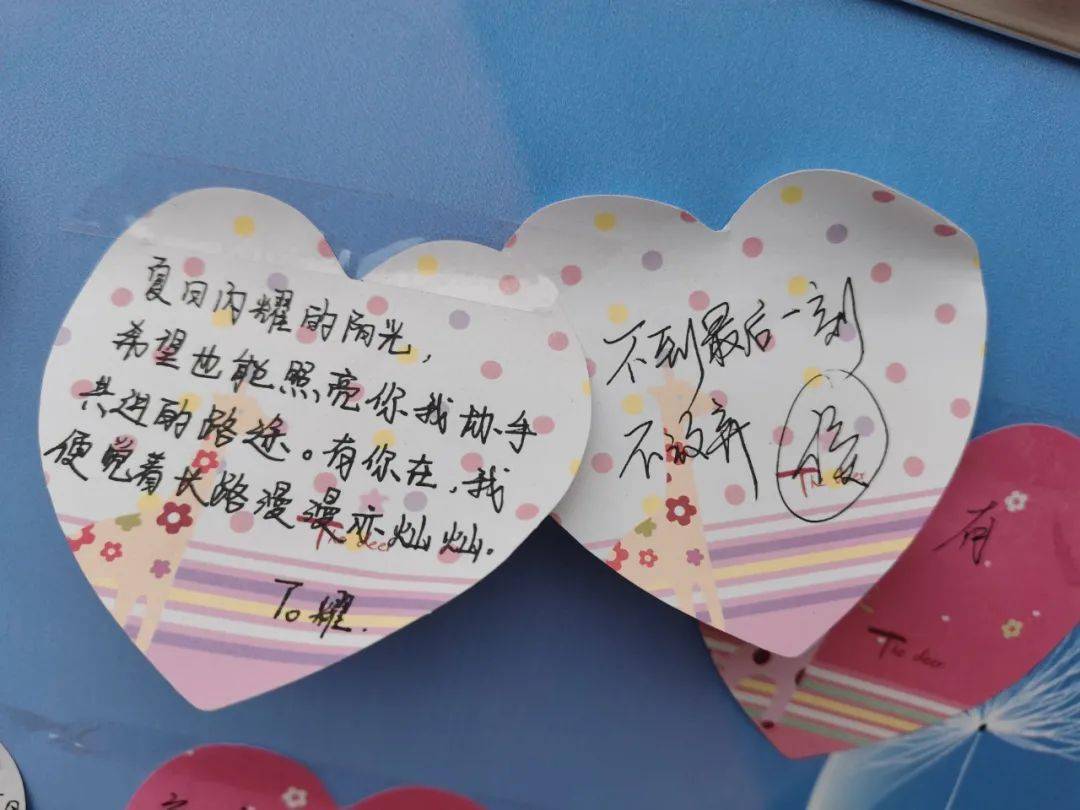 夏日闪耀的阳光，
希望也能照亮你我协手
共进的路途。有你在，我
便觉着长路漫漫亦灿灿.
To 耀.
The deer
不到最后一刻
不放弃
The deer
有
The deer